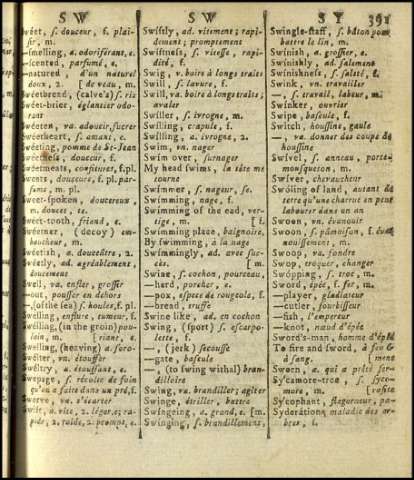 SW
Sweet, ſ. douceur, f. plaiſir, m.
—ſmelling, a. odoriférant, e.
—ſcented, parfumé, e.
—natured, d'un naturel
doux, 2. [de veau, m.
Sweetbread, (calve's) ſ. ris
Sweet-brier, églantier odorant
Sweeten, va. adoucir, ſucrer
Sweetheart, ſ. amant, e.
Sweeting, pomme de St-Jean
ſ. douceur, f.
Sweetmeats, confitures, f. pl.
douceurs, f. pl. parfums, m. pl.
Sweet-ſpoken, doucereux,
m. douces, te.
Sweet-tooth, friand, e.
Sweetner, (decoy) embaucheur, m.
Sweetiſh, a. douceâtre, 2.
Sweetly, ad. agréablement,
doucement
Swell, va. enfler, groſſir
—out, pouſſer en dehors
—(of the ſea) ſ. houle, f. pl.
Swelling, enflure, tumeur, f.
Swelling, (in the groin) poulain, m.
Swelling, (heaving) a.
Swelter, vn. étouffer
Sweltry, a. étouffant, e.
Swepage, ſ. récolte de foin
qu'on a faite dans un pré, f.
Swerve, va. s'écarter
Swift, a. vite, 2. léger, e; rapide, 2. roide, 2. prompt, e.
SW
Swiftly, ad. vitement; rapidement; promptement
Swiftneſs, ſ. viteſſe, rapidité, f.
Swig, v. boire à longs traits
Swill, ſ. lavure, f.
Swill, va. boire à longs traits;
avaler
Swiller, ſ. ivrogne, m.
Swilling, crapule, f.
Swilling, a. ivrogne, 2.
Swim, vn. nager
Swim over, ſurnager
My head ſwims, la tête me
tourne
Swimmer, ſ. nageur, ſe.
Swimming, nage, f.
Swimming of the head, vertige, m. [f.
Swimming place, baignoire,
By ſwimming, à la nage
Swimmingly, ad. avec ſuccès, [m.
Swine, ſ. cochon, pourceau,
—herd, porcher, e.
—pox, eſpece de rougeole, f.
—bread, truffe
Swine like, ad. en cochon
Swing, (ſport) ſ. eſcarpolette, f.
—, (jerk) ſecouſſe
—gate, baſcule
—, (to ſwing withal) brandilloire
Swing, va. brandiller; agiter
Swinge, étriller, battre
Swingeing, a. grand, e. [m.
Swinging, ſ. brandillement,
SY 391
Swingle-ſtaff, ſ. bâton pour
battre le lin, m.
Swiniſh, a. groſſier, e.
Swiniſhly, ad. ſalement
Swiniſhneſs, ſ. ſaleté, f.
Swink, vn. travailler
—, ſ. travail, labeur, m.
Swinker, ouvrier
Swipe, baſcule, f.
Switch, houſſine, gaule
—, va. donner des coups de
houſſine
Swivel, ſ. anneau, porte-mouſqueton, m.
Swivet, chevaucheur
Swoling of land, autant de
terre qu'une charrue en peut
labourer dans un an
Swoon, vn. évanouir
Swoon, ſ. pâmoiſon, f. évanouiſſement, m.
Swoop, va. fondre
Swop, troquer, changer
Swopping, ſ. troc, m.
Sword, épée, f. fer, m.
—player, gladiateur
—cutler, fourbiſſeur
—fiſh, l'empereur
—knot, nœud d'épée
Sword's-man, homme d'épée
To fire and ſword, à feu &
à ſang.
Sworn, a. qui a prêté ſerment
Sycamore-tree, ſ. ſycomore, m.
Sycophant, flagorneur,
Syderation, maladie des arbres, f.